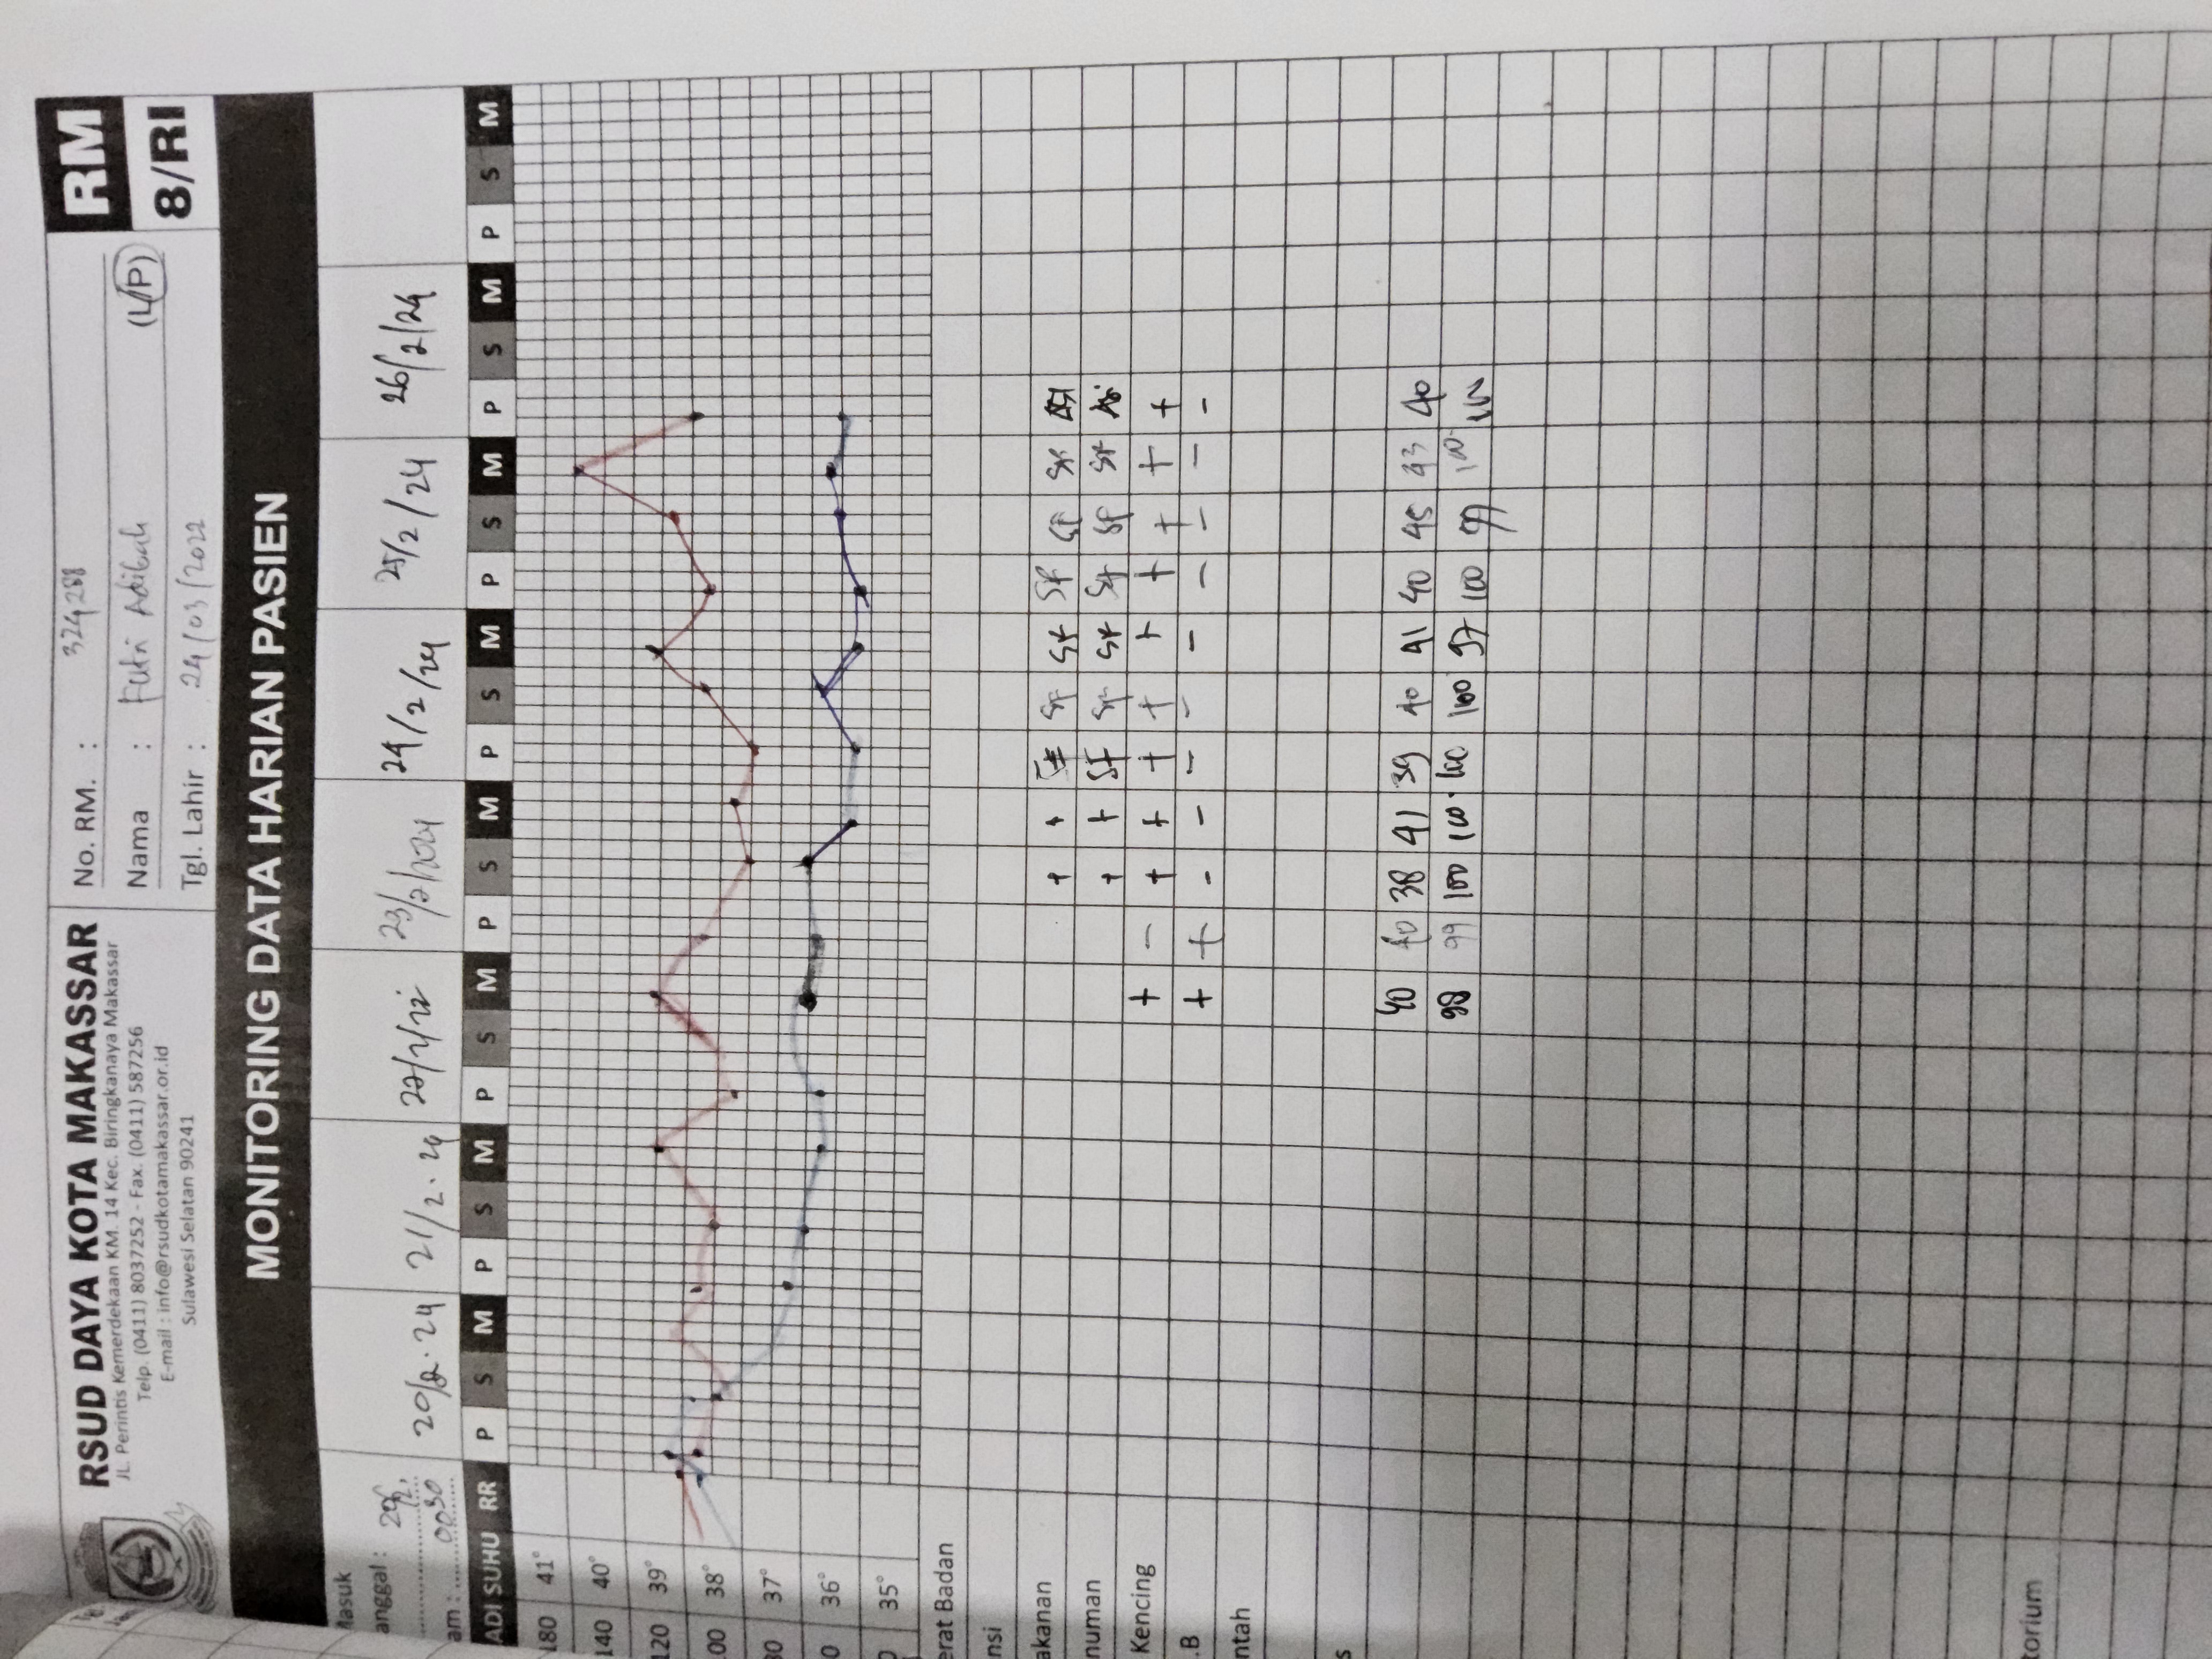 RSUD DAYA KOTA MAKASSAR
JL. Perintis Kemerdekaan KM. 14 Kec. Biringkanaya Makassar
Telp. (0411) 8037252 - Fax. (0411) 587256
E-mail : info@rsudkotamakassar.or.id
Sulawesi Selatan 90241
No. RM. : 324288
Nama : Adibah (L/P)
Tgl. Lahir : 24/03/2022
RM
8/RI
MONITORING DATA HARIAN PASIEN
Masuk
anggal :
am : 0030
20/2.24 21/2.24 23/2/2024 24/2/24 25/2/24 26/2/24
ADI SUHU RR P S M P S M P S M P S M P S M P S M P S M P S M
180 41°
140 40°
120 39°
00 38°
80 37°
0 36°
0 35°
erat Badan
nsi
akanan + + SF SF SF SF SF
numan + + SF SF SF SF SF SF SF
Kencing + - + + + + + + + + +
.B + + - - - - - - - - -
ntah
s
40 40 38 41 39 40 41 40 45 43 40
98 99 100 100 100 100 97 100 99 100 100
torium